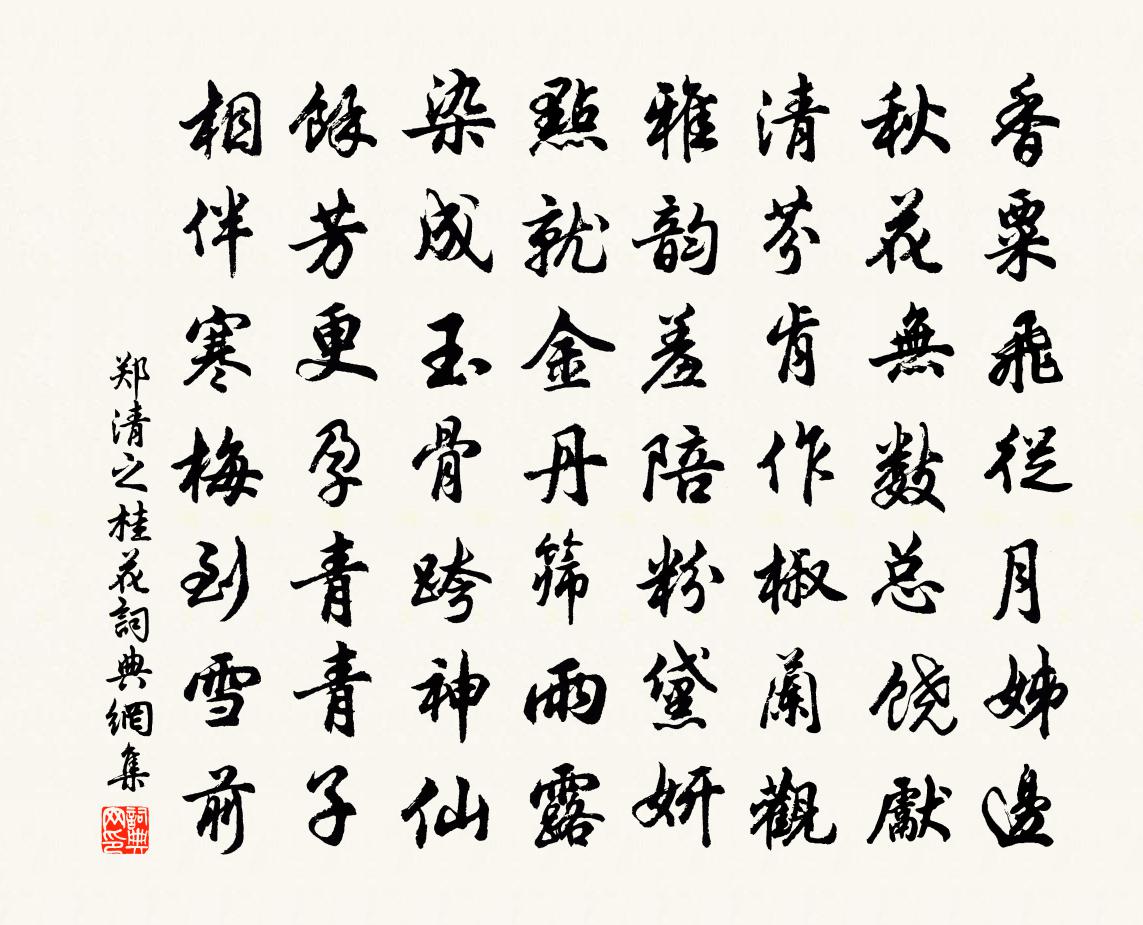 香粟飛從月姊邊
秋花無数总饶獻
清芬肯作椒蘭觀
雅韵羞陪粉黛妍
點就金丹篩雨露
染成玉骨跨神仙
餘芳更孕青青子
相伴寒梅到雪前
郑清之桂花詞典網集
詞典
网印